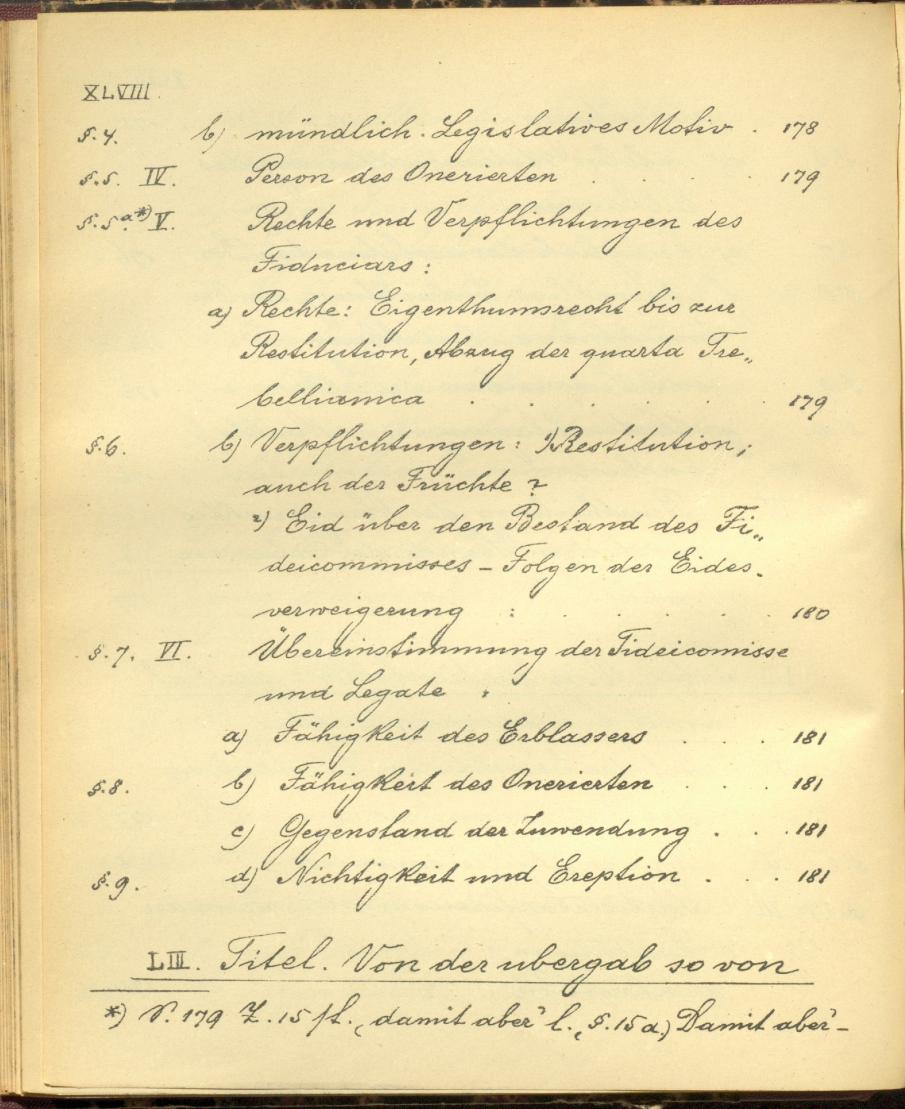 XLVIII.
§.4. b) mündlich. Legislatives Motiv . 178
§.5. IV. Person des Onerierten . . . 179
§.5.a*) V. Rechte und Verpflichtungen des
Fiduciars:
a) Rechte: Eigenthumsrecht bis zur
Restitution, Abzug der quarta Tre„
bellianica . . . . . 179
§.6. b) Verpflichtungen: 1) Restitution,
auch der Früchte?
2) Eid über den Bestand des Fi„
deicommisses – Folgen der Eides-
verweigerung : . . . . 180
§.7. VI. Übereinstimmung der Fideicomisse
und Legate .
a) Fähigkeit des Erblassers . . . 181
§.8. b) Fähigkeit des Onerierten . . . 181
c) Gegenstand der Zuwendung . . . 181
§.9. d) Nichtigkeit und Ereption . . . 181
LIII. Titel. Von der ubergab so von
*) S. 179 Z. 15 st. „damit aber“ l. „§. 15 a.) Damit aber“-